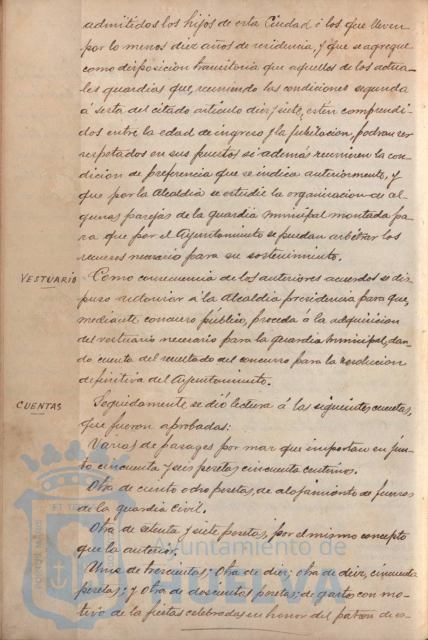 admitidos los hijos de esta Ciudad ó los que lleven
por lo menos diez años de residencia, y que se agregue
como disposición transitoria que aquellos de los actua-
les guardias que, reuniendo las condiciones segunda
á sexta del citado artículo diez y siete, estén comprendi-
dos entre la edad de ingreso y la jubilación, podrán ser
respetados en sus puestos si además reunieren la con-
dición de preferencia que se indica anteriormente, y
que por la Alcaldía se estudie la organización de al-
gunas parejas de la guardia municipal montada pa-
ra que por el Ayuntamiento se puedan arbitrar los
recursos necesario para su sostenimiento.
VESTUARIO Como consecuencia de los anteriores acuerdos se dis-
puso autorizar á la Alcaldía presidencia para que,
mediante concurso público, proceda á la adquisición
del vestuario necesario para la guardia municipal, dan-
do cuenta del resultado del concurso para la resolución
definitiva del Ayuntamiento.
CUENTAS Seguidamente se dió lectura á las siguientes cuentas,
que fueron aprobadas:
Varias de pasages por mar que importan en jun-
to cincuenta y seis pesetas cincuenta céntimos.
Otra de ciento ocho pesetas, de alojamiento de fuerzas
de la guardia Civil.
Otra de setenta y siete pesetas, por el mismo concepto
que la anterior.
Unas de trescientas; otra de diez; otra de diez, cincuenta
pesetas; y otra de doscientas pesetas; de gastos con mo-
tivo de la fiestas celebradas en honor del patrón de es-
Ayuntamiento de